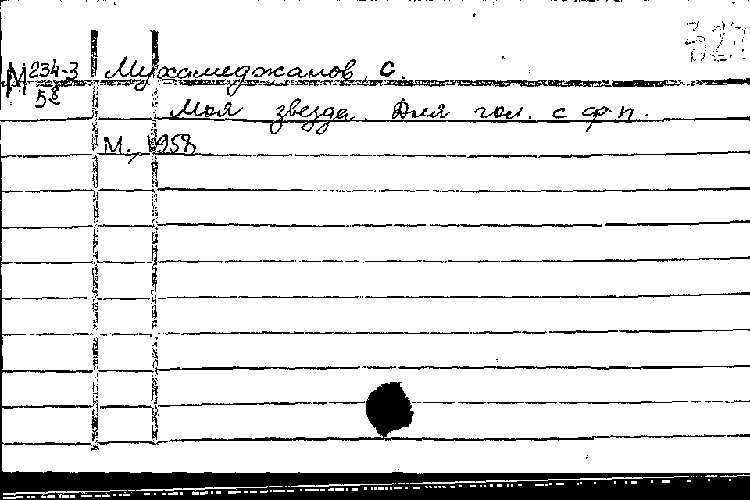 327
М 234-3 Мухамеджанов С.
58 Моя звезда. Для гол. с ф-п.
М., 1958